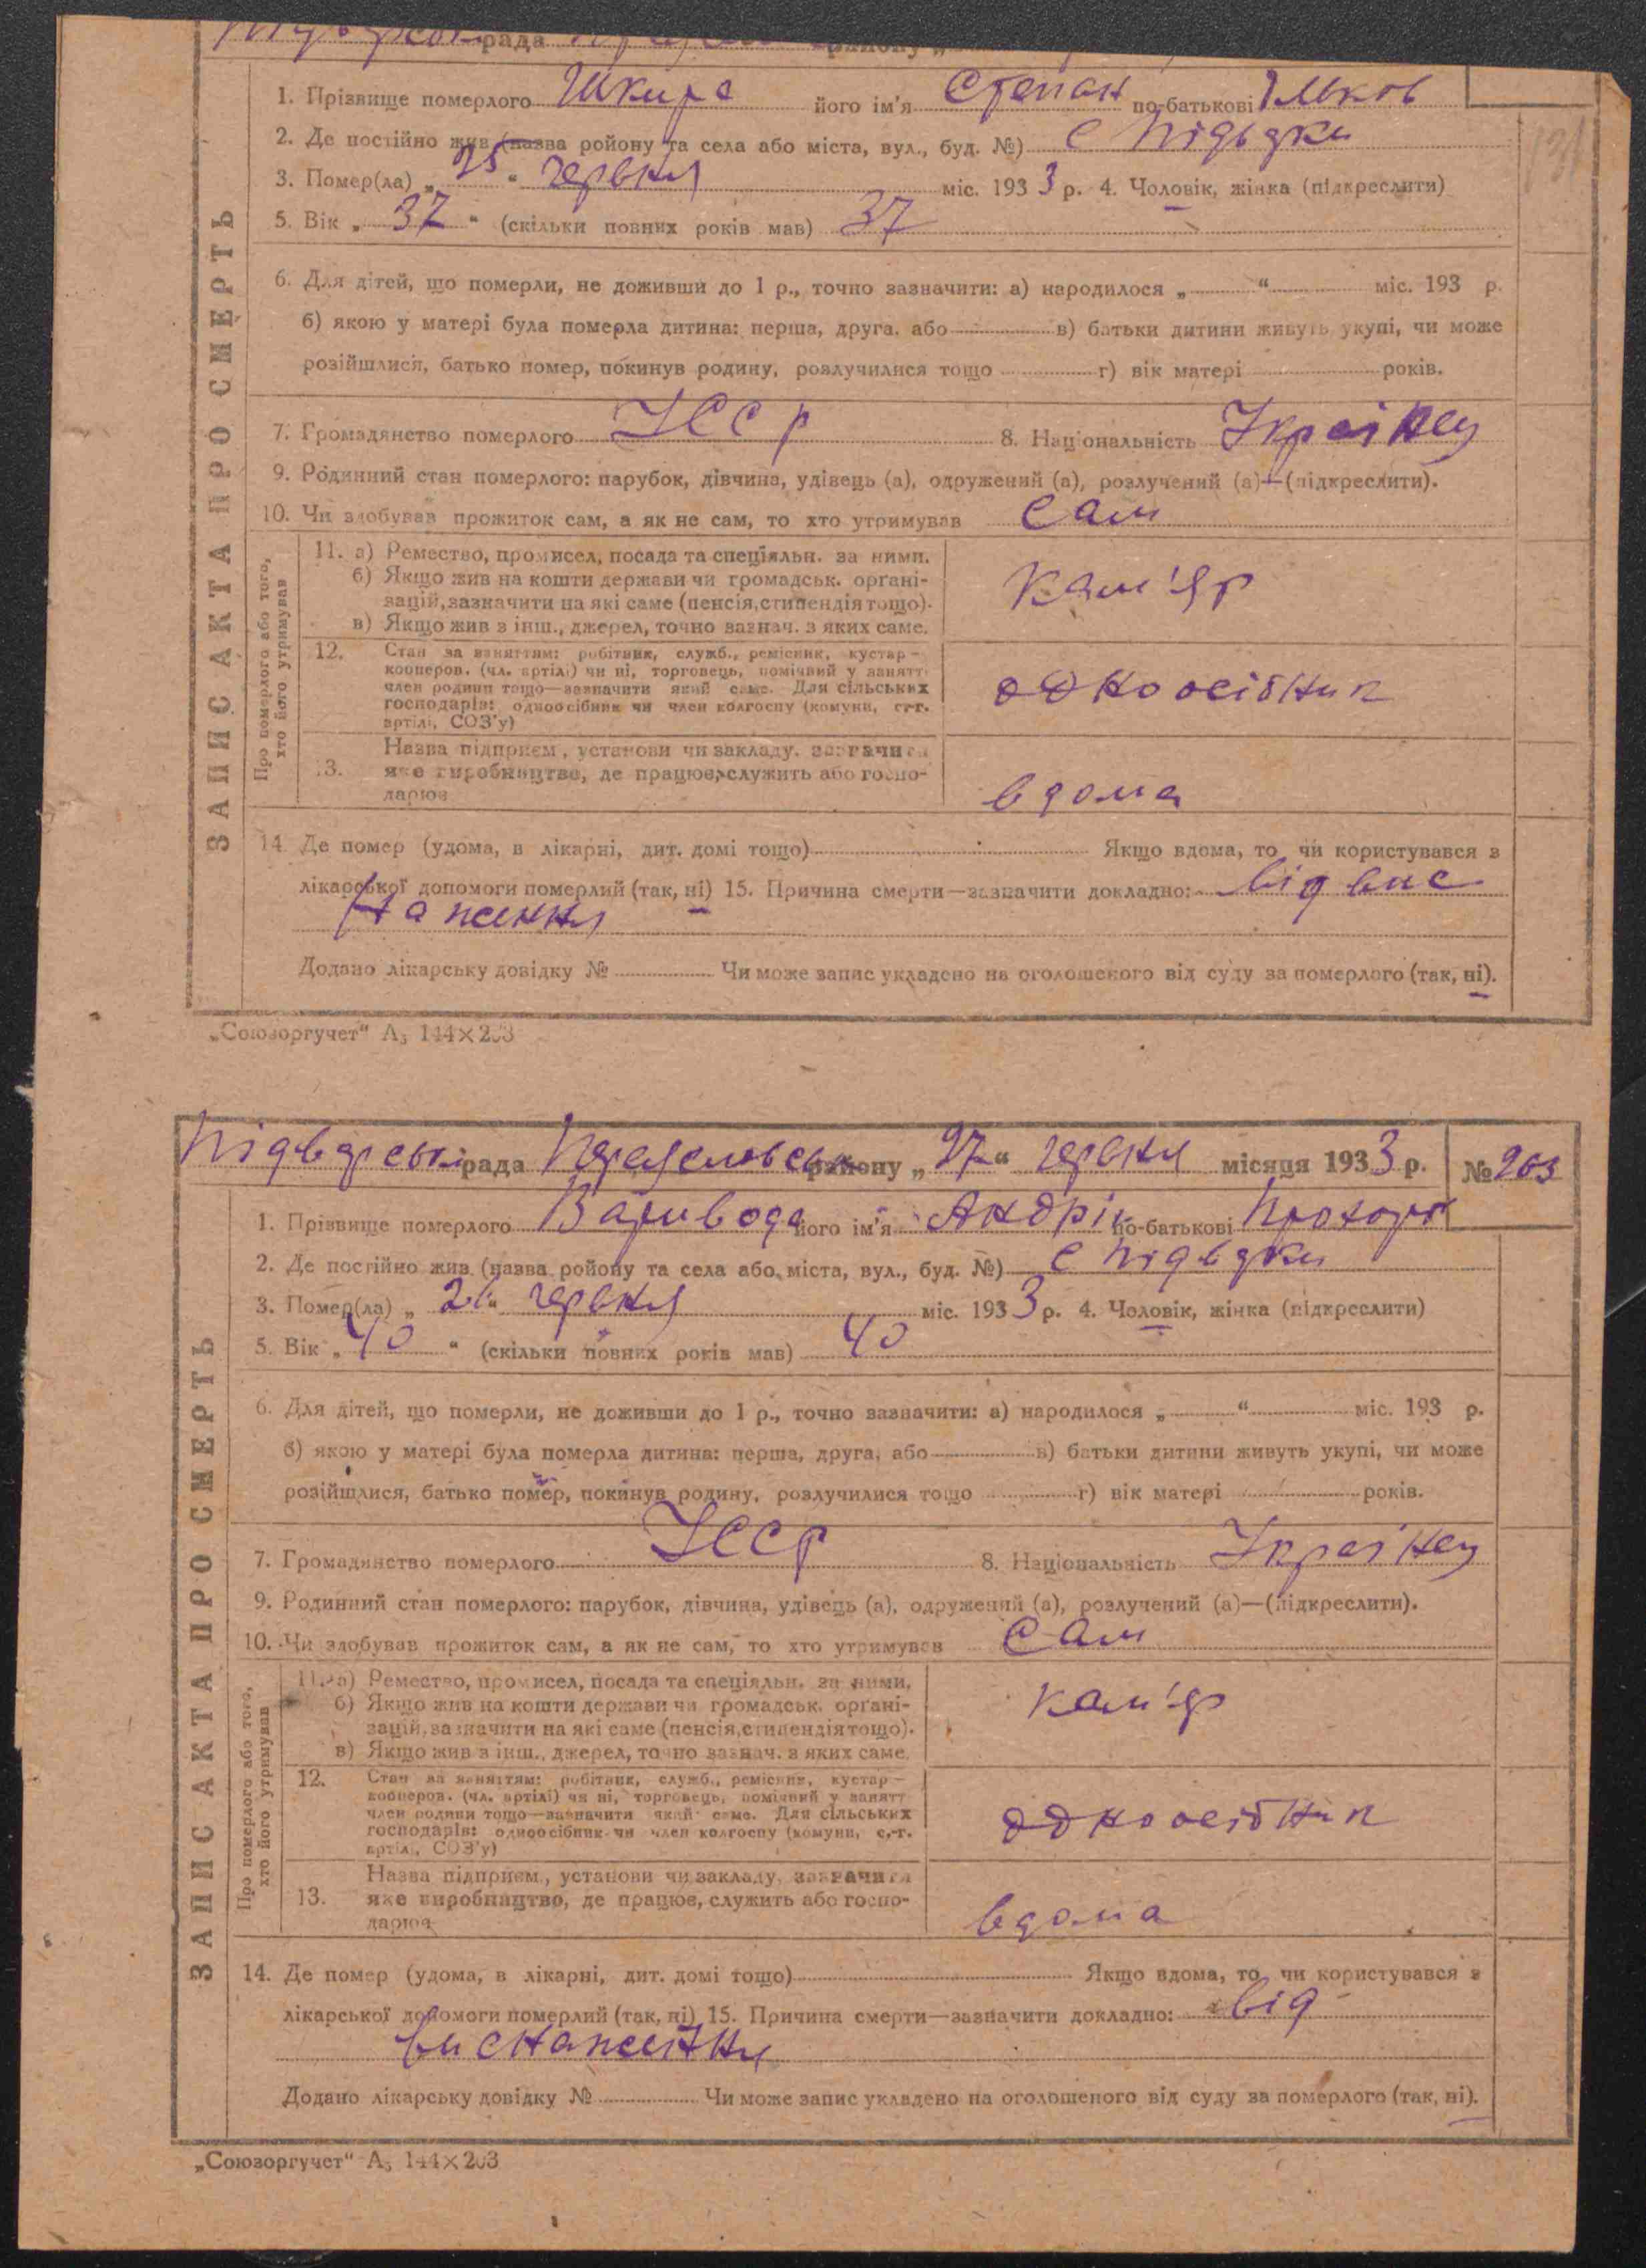 рада
1. Прізвище померлого Шкира його ім'я Степан по-батькові Ільков
2. Де постійно жив (назва ройону та села або міста, вул., буд. №) с Підварки
3. Помер(ла) „ 25 “ червня міс. 193 3 р. 4. Чоловік, жінка (підкреслити)
5. Вік „ 37 “ (скільки повних років мав) 37
6. Для дітей, що померли, не доживши до 1 р., точно зазначити: а) народилося „ “ міс. 193 р.
б) якою у матері була померла дитина: перша, друга, або в) батьки дитини живуть укупі, чи може
розійшлися, батько помер, покинув родину, розлучилися тощо г) вік матері років.
7. Громадянство померлого УССР 8. Національність Українец
9. Родинний стан померлого: парубок, дівчина, удівець (а), одружений (а), розлучений (а)—(підкреслити).
10. Чи здобував прожиток сам, а як не сам, то хто утримував сам
ЗАПИС АКТА ПРО СМЕРТЬ
Про померлого або того, хто його утримував
11. а) Ремество, промисел, посада та спеціяльн. за ними.
б) Якщо жив на кошти держави чи громадськ. органі-
зацій, зазначити на які саме (пенсія, стипендія тощо).
в) Якщо жив з інш., джерел, точно зазнач. з яких саме.
кам'яр
12. Стан за заняттям: робітник, служб., ремісник, кустар—
кооперов. (чл. артілі) чи ні, торговець, помічний у занятт
член родини тощо—зазначити який саме. Для сільських
господарів: одноосібник чи член колгоспу (комуни, с.-г.
артілі, СОЗ'у)
одноосібник
13. Назва підприєм., установи чи закладу, зазначити
яке виробництво, де працює, служить або госпо-
дарює
вдома
14. Де помер (удома, в лікарні, дит. домі тощо) Якщо вдома, то чи користувався з
лікарської допомоги померлий (так, ні) 15. Причина смерти—зазначити докладно: від вис
наження
Додано лікарську довідку № Чи може запис укладено на оголошеного від суду за померлого (так, ні).
„Союзоргучет“ А₅ 144×203
Підварська рада Переяславськ району „ 27 “ червня місяця 193 3 р. № 263
1. Прізвище померлого Варивода його ім'я Андрій по-батькові Прохоров
2. Де постійно жив (назва ройону та села або міста, вул., буд. №) с Підварки
3. Помер(ла) „ 26 “ червня міс. 193 3 р. 4. Чоловік, жінка (підкреслити)
5. Вік „ 40 “ (скільки повних років мав) 40
6. Для дітей, що померли, не доживши до 1 р., точно зазначити: а) народилося „ “ міс. 193 р.
б) якою у матері була померла дитина: перша, друга, або в) батьки дитини живуть укупі, чи може
розійшлися, батько помер, покинув родину, розлучилися тощо г) вік матері років.
7. Громадянство померлого УССР 8. Національність Українец
9. Родинний стан померлого: парубок, дівчина, удівець (а), одружений (а), розлучений (а)—(підкреслити).
10. Чи здобував прожиток сам, а як не сам, то хто утримував сам
ЗАПИС АКТА ПРО СМЕРТЬ
Про померлого або того, хто його утримував
11. а) Ремество, промисел, посада та спеціяльн. за ними.
б) Якщо жив на кошти держави чи громадськ. органі-
зацій, зазначити на які саме (пенсія, стипендія тощо).
в) Якщо жив з інш., джерел, точно зазнач. з яких саме.
кам'яр
12. Стан за заняттям: робітник, служб., ремісник, кустар—
кооперов. (чл. артілі) чи ні, торговець, помічний у занятт
член родини тощо—зазначити який саме. Для сільських
господарів: одноосібник чи член колгоспу (комуни, с.-г.
артілі, СОЗ'у)
одноосібник
13. Назва підприєм., установи чи закладу, зазначити
яке виробництво, де працює, служить або госпо-
дарює
вдома
14. Де помер (удома, в лікарні, дит. домі тощо) Якщо вдома, то чи користувався з
лікарської допомоги померлий (так, ні) 15. Причина смерти—зазначити докладно: від
виснаження
Додано лікарську довідку № Чи може запис укладено на оголошеного від суду за померлого (так, ні).
„Союзоргучет“ А₅ 144×203